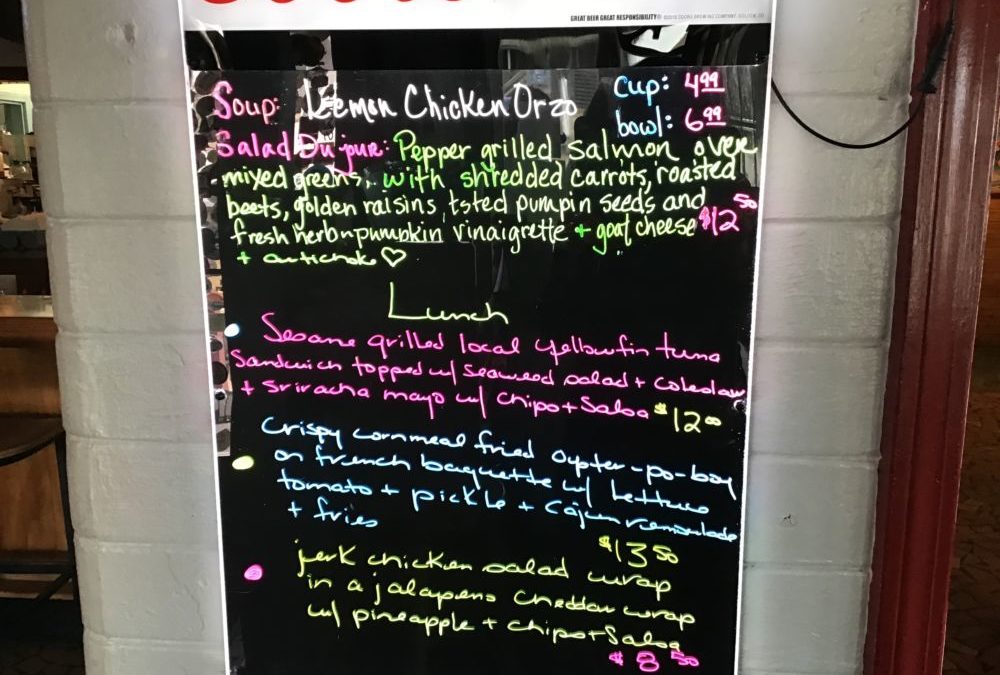 GREAT BEER GREAT RESPONSIBILITY® ©2015 COORS BREWING COMPANY, GOLDEN, CO
Soup: Lemon Chicken Orzo cup: 4.99
bowl: 6.99
Salad Du jour: Pepper grilled salmon over
mixed greens, with shredded carrots, roasted
beets, golden raisins, tsted pumpin seeds and
fresh herb-pumpkin vinaigrette + goat cheese $12.50
+ artichoke ♡
Lunch
Sesame grilled local yellowfin tuna
Sandwich topped w/ seaweed salad + coleslaw
+ sriracha mayo w/ chips + salsa $12.00
Crispy cornmeal fried oyster-po-boy
on french baguette w/ lettuce
tomato + pickle + cajun remoulade
+ fries
$13.50
jerk chicken salad wrap
in a jalapeno cheddar wrap
w/ pineapple + chips + salsa
$8.50